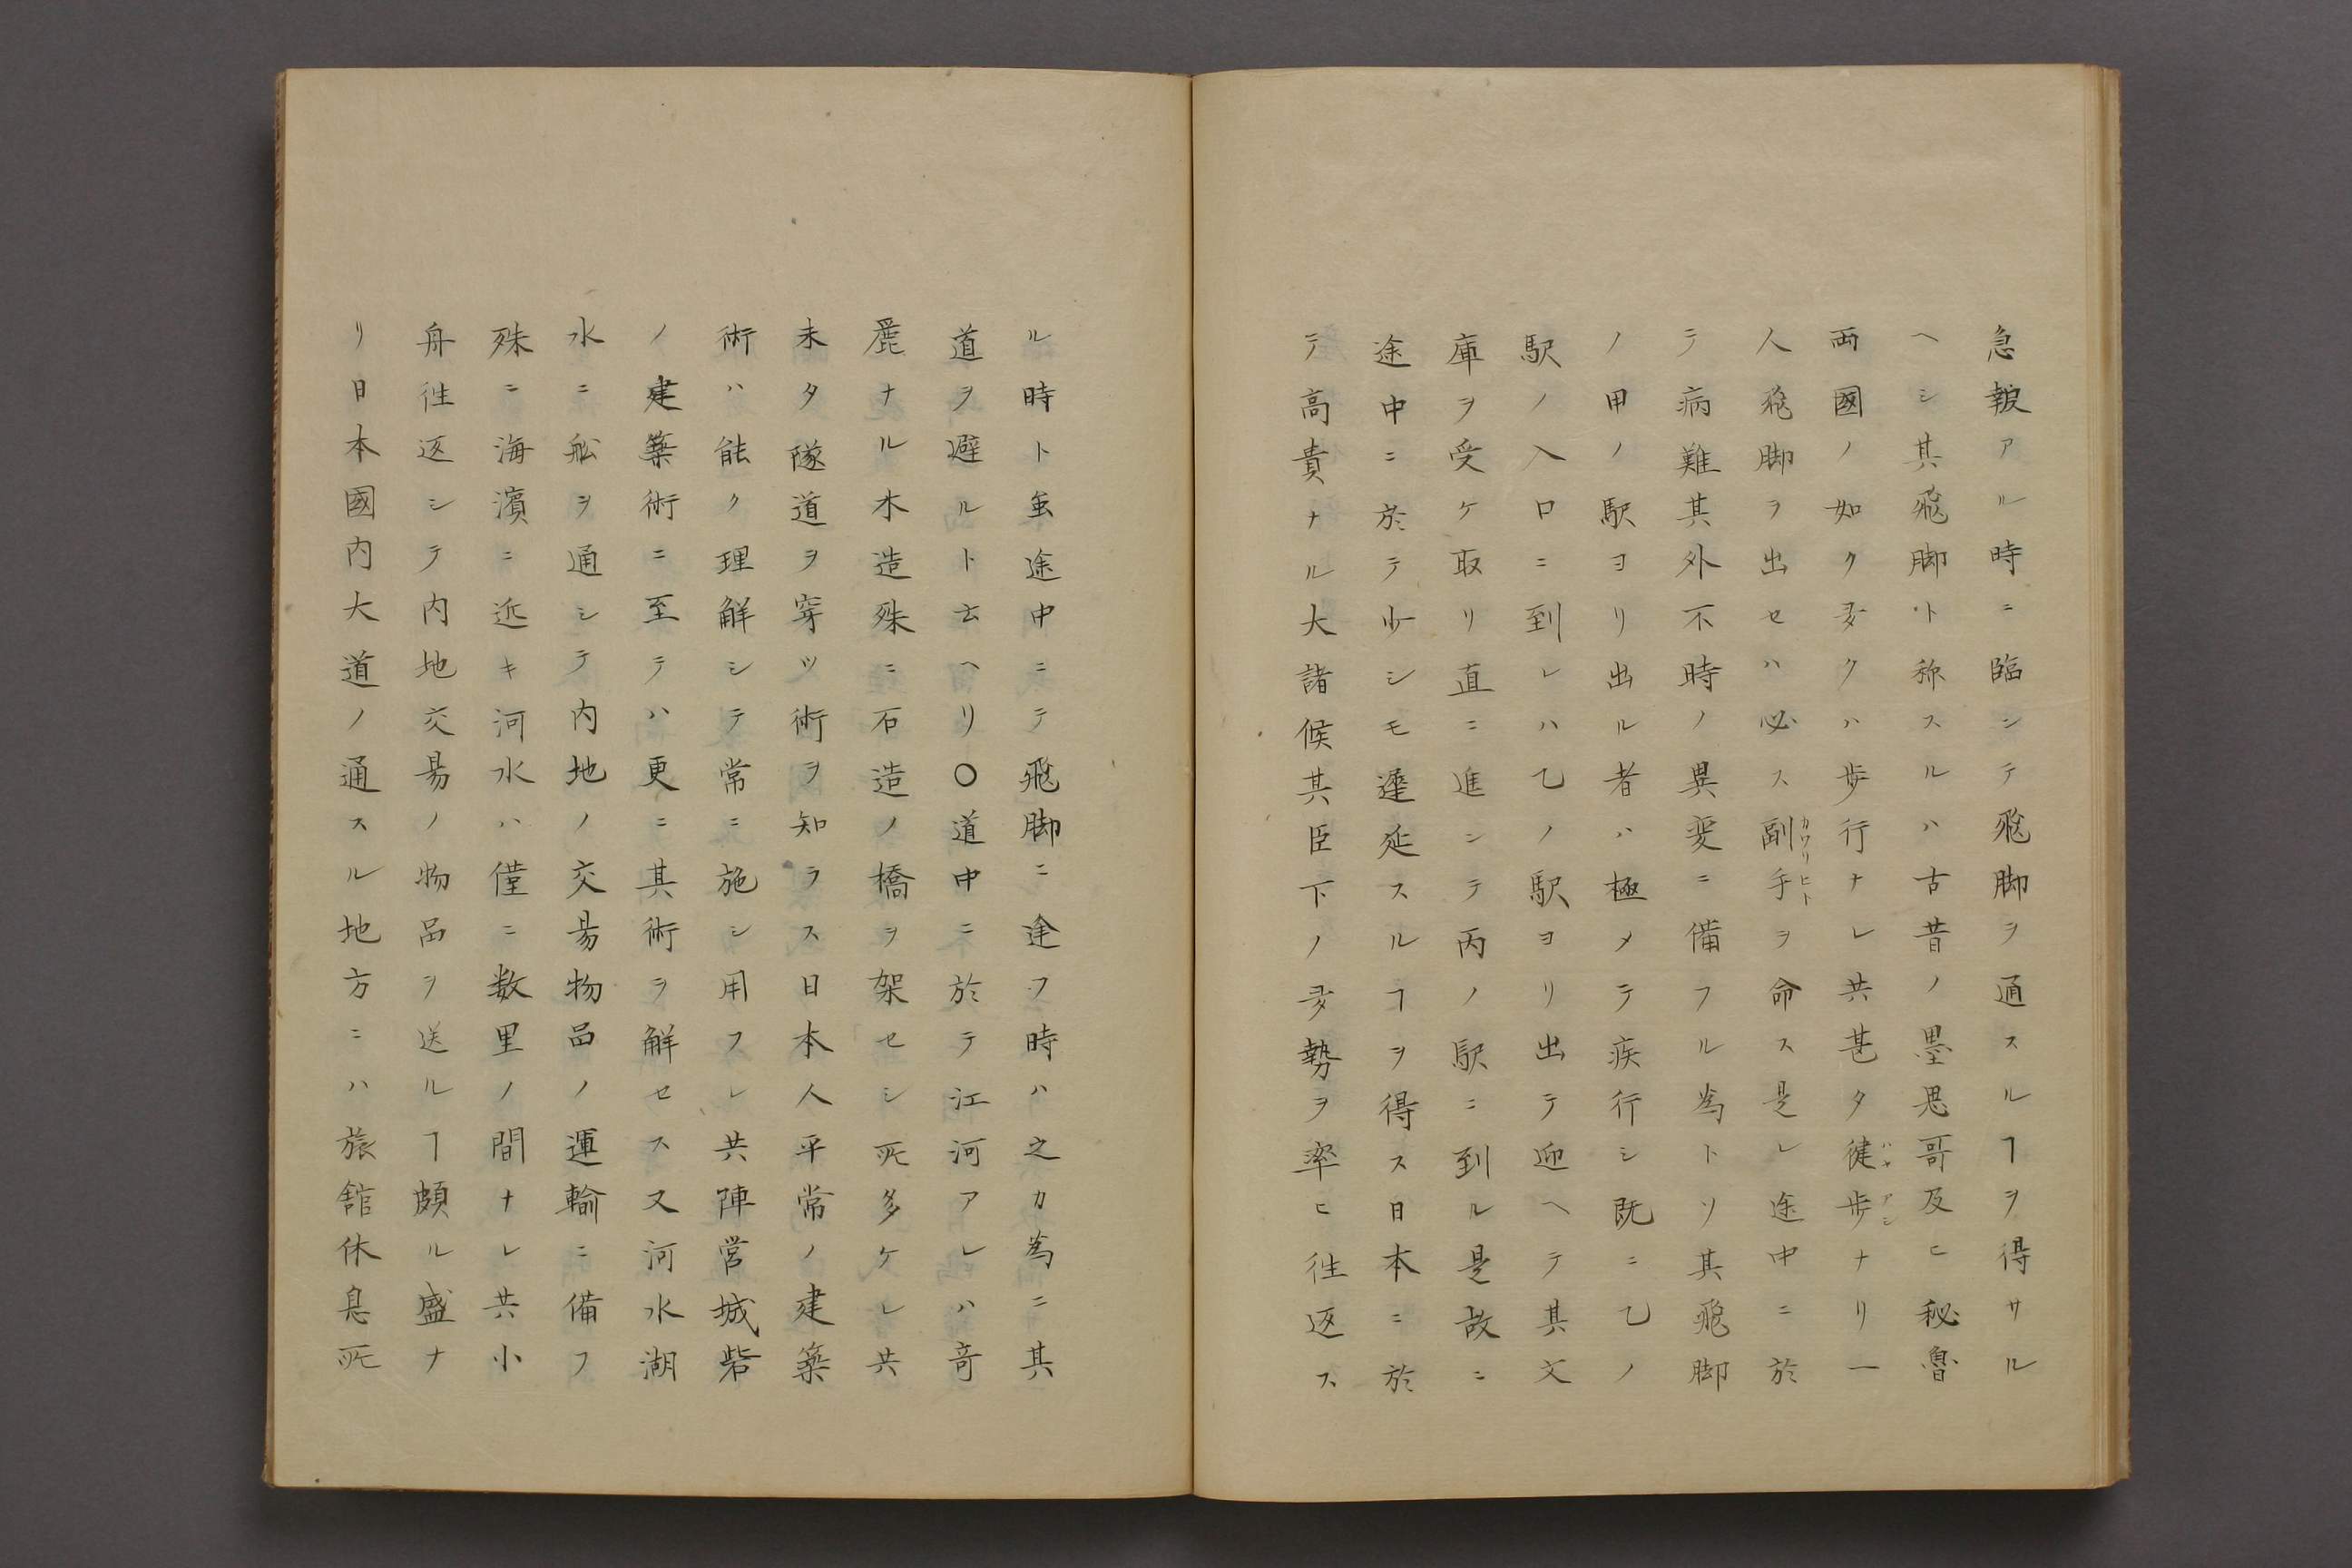 急報アル時ニ臨ンテ飛脚ヲ通スルヿヲ得サル
ヘシ其飛脚ト称スルハ古昔ノ墨思哥及ヒ秘魯
両國ノ如ク多クハ歩行ナレ共甚タ健歩ナリ一
ハヤアシ
人飛脚ヲ出セハ必ス副手ヲ命ス是レ途中ニ於
カワリヒト
テ病難其外不時ノ異変ニ備フル為トソ其飛脚
ノ甲ノ駅ヨリ出ル者ハ極メテ疾行シ既ニ乙ノ
駅ノ入口ニ到レハ乙ノ駅ヨリ出テ迎ヘテ其文
庫ヲ受ケ取リ直ニ進ンテ丙ノ駅ニ到ル是故ニ
途中ニ於テ少シモ遅延スルヿヲ得ス日本ニ於
テ高貴ナル大諸侯其臣下ノ多勢ヲ率ヒ往返ス
ル時ト虽途中ニテ飛脚ニ逢フ時ハ之カ為ニ其
道ヲ避ルト云ヘリ〇道中ニ於テ江河アレハ奇
麗ナル木造殊ニ石造ノ橋ヲ架セシ所多ケレ共
未タ隊道ヲ穿ツ術ヲ知ラス日本人平常ノ建築
術ハ能ク理解シテ常ニ施シ用フレ共陣営城砦
ノ建築術ニ至テハ更ニ其術ヲ解セス又河水湖
水ニ舩ヲ通シテ内地ノ交易物品ノ運輸ニ備フ
殊ニ海濱ニ近キ河水ハ僅ニ数里ノ間ナレ共小
舟往返シテ内地交易ノ物品ヲ送ルヿ頗ル盛ナ
リ日本國内大道ノ通スル地方ニハ旅舘休息所